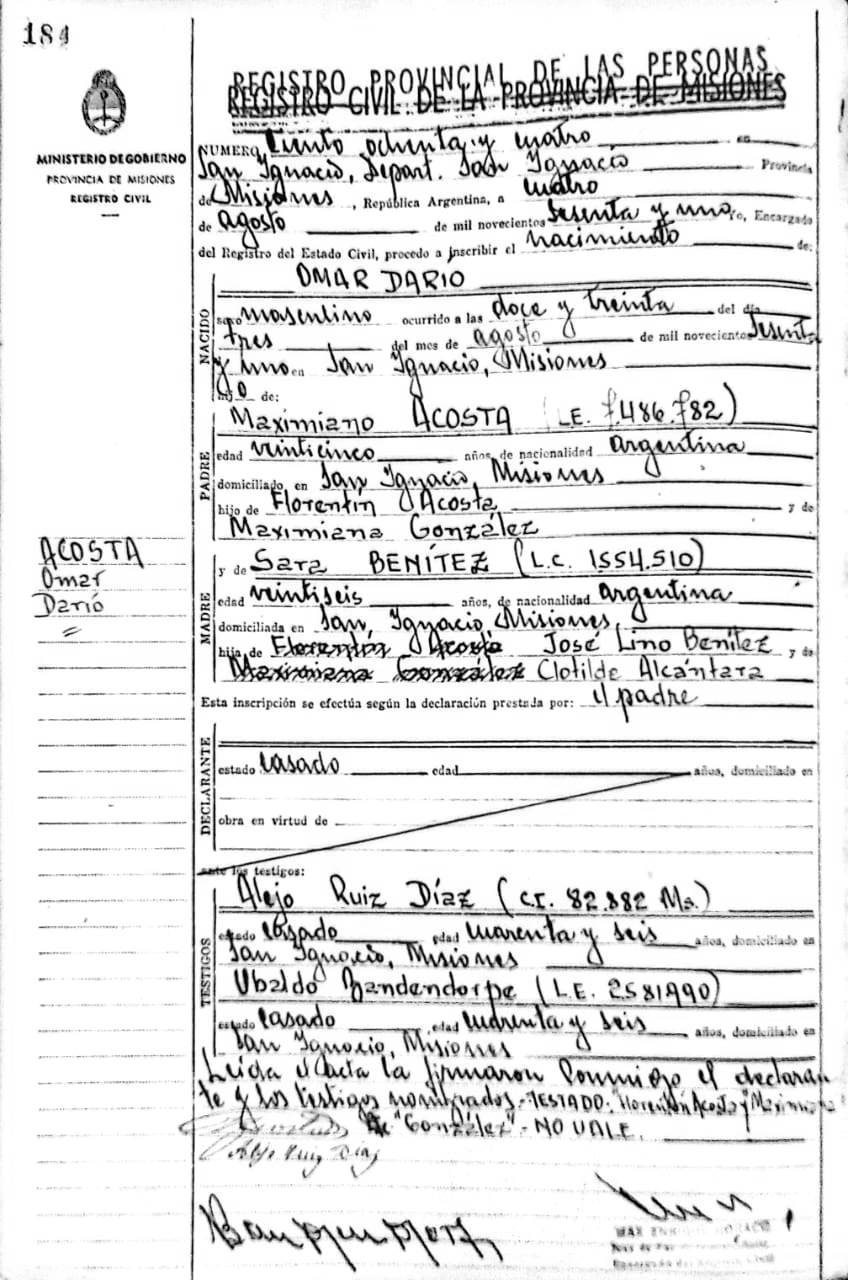 184
MINISTERIO DE GOBIERNO
PROVINCIA DE MISIONES
REGISTRO CIVIL
REGISTRO PROVINCIAL DE LAS PERSONAS
REGISTRO CIVIL DE LA PROVINCIA DE MISIONES
NUMERO Ciento ochenta y cuatro en
San Ignacio, Depart. San Ignacio Provincia
de Misiones, República Argentina, a cuatro
de agosto de mil novecientos Sesenta y uno Yo, Encargado
del Registro del Estado Civil, procedo a inscribir el nacimiento de:
NACIDO
OMAR DARIO
sexo masculino ocurrido a las doce y treinta del día
tres del mes de agosto de mil novecientos Sesenta
y uno en San Ignacio, Misiones
hijo de:
PADRE
Maximiano ACOSTA (LE. 7.486.782)
edad veinticinco años, de nacionalidad argentina
domiciliado en San Ignacio, Misiones
hijo de Florentín Acosta y de
Maximiana González
ACOSTA
Omar
Darío
MADRE
y de Sara BENÍTEZ (L.C. 1554.510)
edad veintiseis años, de nacionalidad argentina
domiciliada en San Ignacio, Misiones,
hija de Florentín Acosta José Lino Benítez y de
Maximiana González Clotilde Alcántara
Esta inscripción se efectúa según la declaración prestada por: el padre
DECLARANTE
estado casado edad años, domiciliado en
obra en virtud de
ante los testigos:
TESTIGOS
Alejo Ruiz Díaz (C.I. 82.882 Ms.)
estado casado edad cuarenta y seis años, domiciliado en
San Ignacio, Misiones
Ubaldo Bandendorpe (L.E. 2581990)
estado casado, edad cuarenta y seis años, domiciliado en
San Ignacio, Misiones
Leída el acta la firmaron conmigo el declaran
te y los testigos nombrados.- TESTADO: "Florentín Acosta y Maximiana
"González"- NO VALE.
Alejo Ruiz Díaz